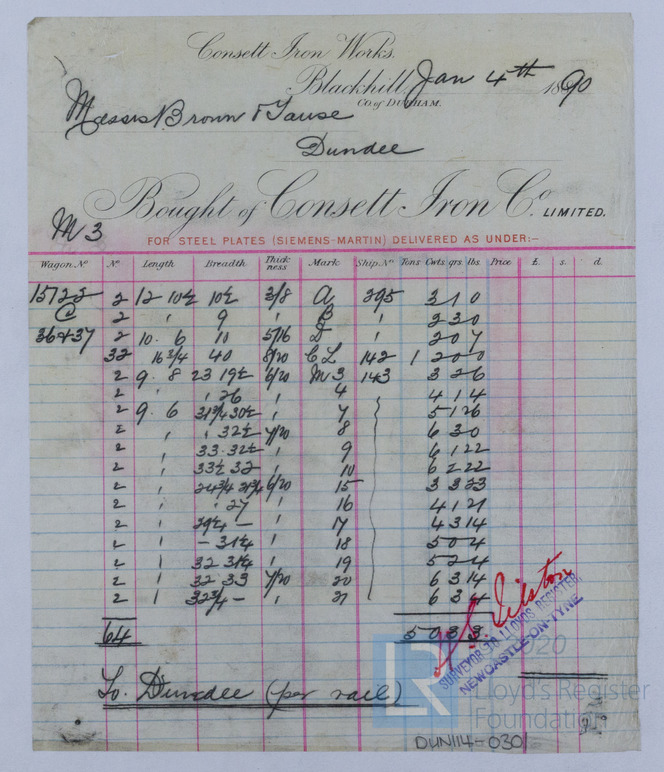 Consett Iron Works,
Blackhill, Jan 4th 1890
CO. of DURHAM.
Messrs Brown &
Dundee
Bought of Consett Iron Co. LIMITED.
M 3
FOR STEEL PLATES (SIEMENS-MARTIN) DELIVERED AS UNDER:—
Wagon No. No. Length Breadth Thickness Mark Ship. No. Tons Cwts qrs lbs. Price £. s. d.
2 12 10½ 10½ 3/8 A 295 3 1 0
C 2 " 9 " B " 2 3 0
2 10. 6 10 5/16 D " 2 0 7
32 16 3/4 40 8/20 C L 142 1 2 0 0
2 9. 8 23 19½ 6/20 M 3 143 3 2 6
2 " " 26 " 4 4 1 4
2 9. 6 31¾ 30½ " 7 5 1 26
2 " " 32½ 7/20 8 6 3 0
2 " 33. 32½ " 9 6 1 22
2 " 33½ 32 " 10 6 2 22
2 " 24¾ 31¾ 6/20 15 3 3 23
2 " " 27 " 16 4 1 21
2 " 29¼ — " 17 4 3 14
2 " — 31¼ " 18 5 0 4
2 " 32 31¼ " 19 5 2 4
2 " 32 33 7/20 20 6 3 14
2 " 32¾ — " 21 6 3 4
64 5 0 3 3
To. Dundee (per rail)
SURVEYOR TO LLOYDS REGISTER,
NEWCASTLE-ON-TYNE
LR
2020
Lloyd's Register
Foundation
DUN114-0301